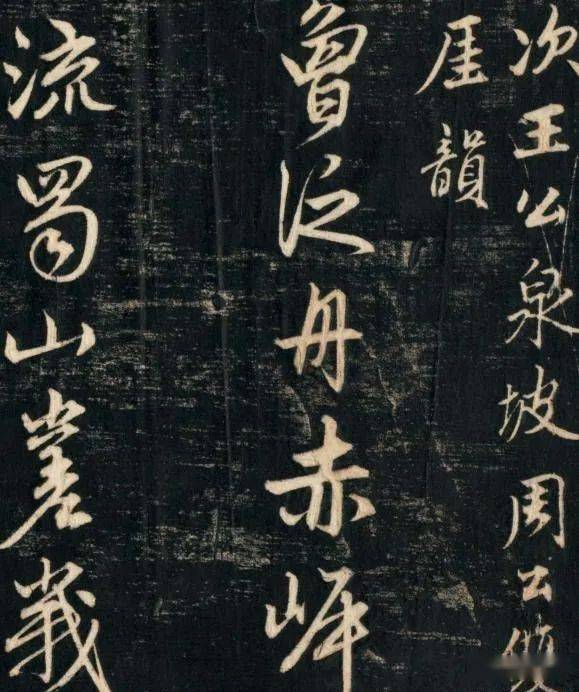 次王公泉坡周公
厓韻
曾泛舟赤岸
流蜀山嵳峩